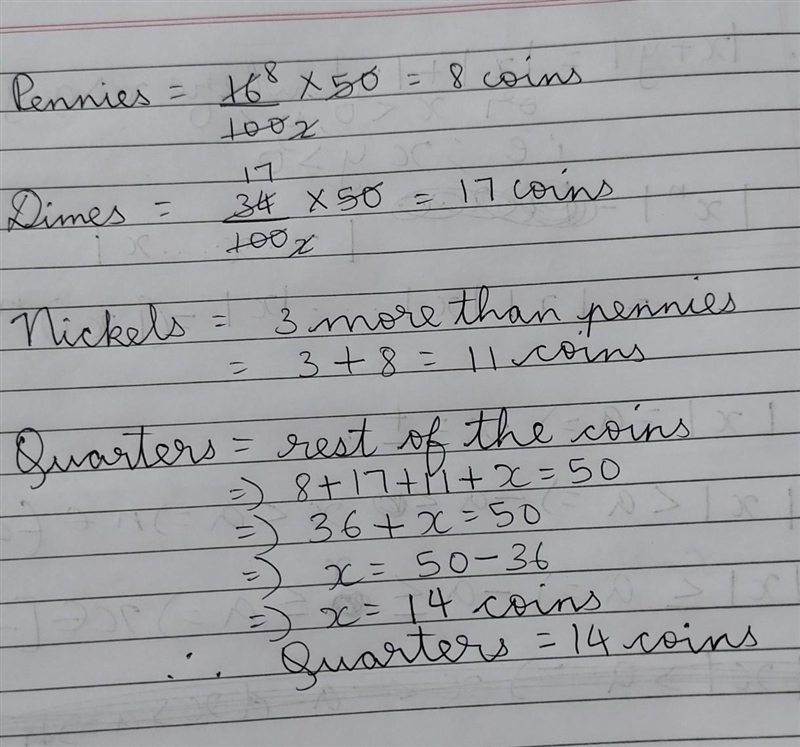 Pennies = 16 8 × 50 = 8 coins
100 2
17
Dimes = 34 × 50 = 17 coins
100 2
Nickels = 3 more than pennies
= 3 + 8 = 11 coins
Quarters = rest of the coins
=) 8+17+11+x=50
=) 36+x=50
=) x= 50-36
=) x= 14 coins
∴ Quarters = 14 coins